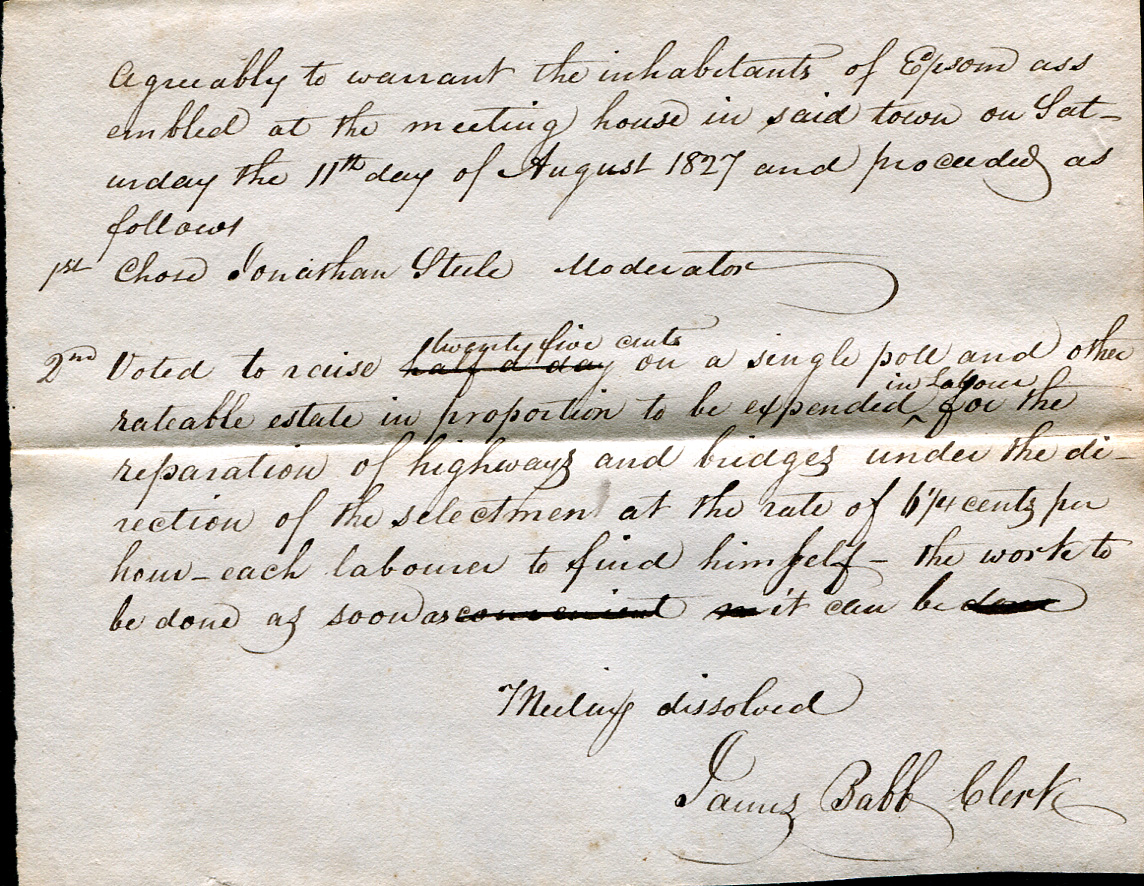 Agreeably to warrant the inhabitants of Epsom ass
embled at the meeting house in said town on Sat-
urday the 11th day of August 1827 and proceeded as
follows
1st Chose Jonathan Steele Moderator
twenty five cents
2nd Voted to raise half a day on a single poll and other
in Labour
rateable estate in proportion to be expended ^ for the
reparation of highways and bridges under the di
rection of the selectmen at the rate of 6 1/4 cents per
hour - each labourer to find himself - the work to
be done as soon as convenient it can be done
Meeting dissolved
James Babb Clerk